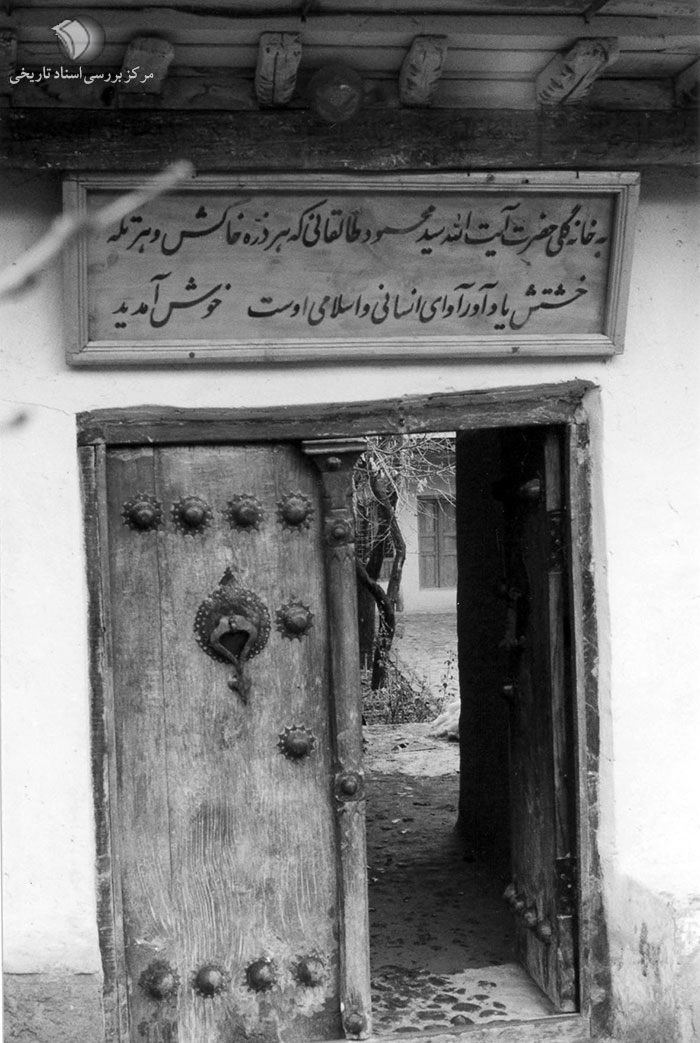 مرکز بررسی اسناد تاریخی
به خانه گلی حضرت آیت الله سید محمود طالقانی که هر ذره خاکش و هر تکه
خشتش یادآور آوای انسانی و اسلامی اوست خوش آمدید